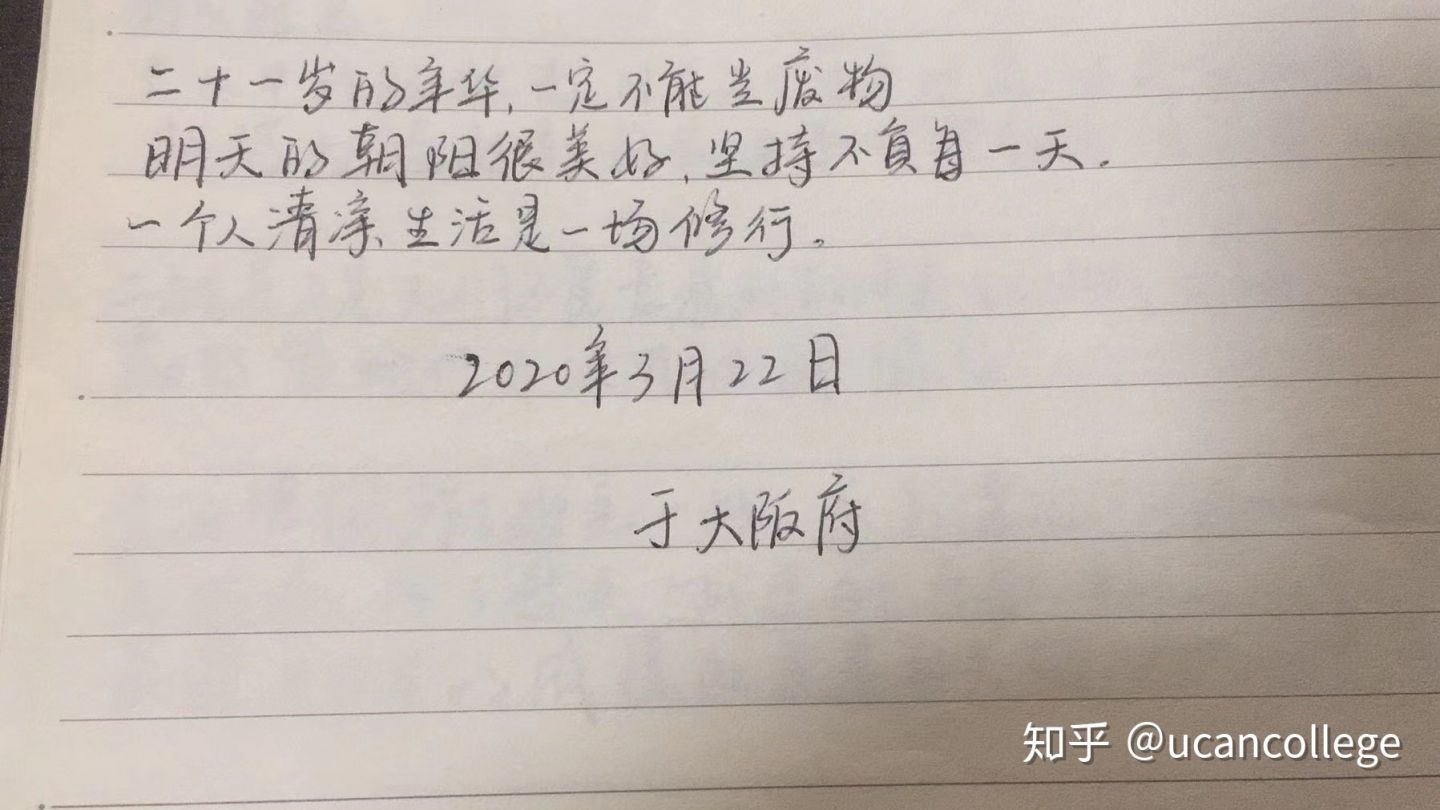 二十一岁的年华,一定不能当废物
明天的朝阳很美好,坚持不负每一天.
一个人清凉生活是一场修行。
2020年3月22日
于大阪府
知乎 @ucancollege